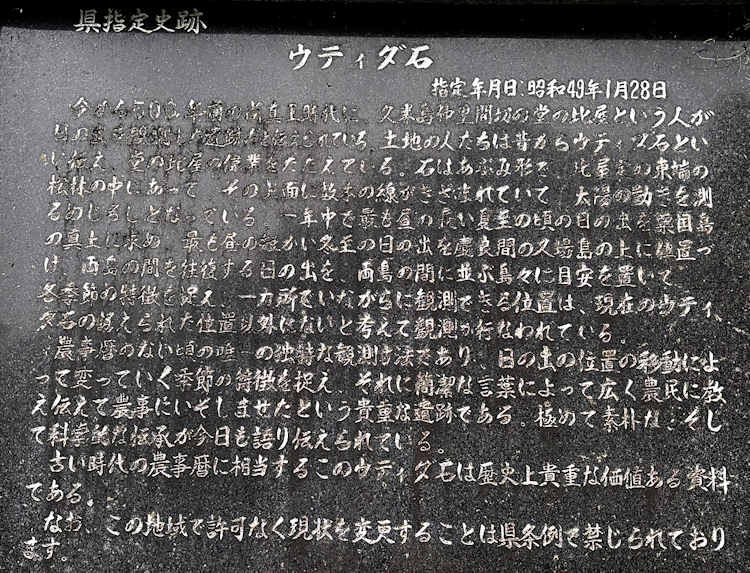 県指定史跡
ウティダ石
指定年月日:昭和49年1月28日
今から500年前の尚真王時代に、久米島仲里間切の堂の比屋という人が
日の出を観測した遺跡だと伝えられている。土地の人たちは昔からウティダ石とい
い伝え、堂の比屋の偉業をたたえている。石はあぶみ形で、比屋定の東端の
松林の中にあって その上面に数本の線がきざまれていて 太陽の動きを測
るめじるしとなっている 一年中で最も昼の長い夏至の頃の日の出を粟国島
の真上に求め 最も昼の短かい冬至の日の出を慶良間の久場島の上に位置づ
け、両島の間を往復する日の出を 両島の間に並ぶ島々に目安を置いて
各季節の特徴を捉え、一カ所でいながらに観測できる位置は、現在のウティ
ダ石の据えられた位置以外にないと考えて観測が行なわれている。
農事暦のない頃の唯一の独特な観測方法であり、日の出の位置の移動によ
って変っていく季節の特徴を捉え それに簡潔な言葉によって広く農民に教
え伝えて農事にいそしませたという貴重な遺跡である。極めて素朴な、そし
て科学的な伝承が今日も語り伝えられている。
古い時代の農事暦に相当するこのウティダ石は歴史上貴重な価値ある資料
である。
なお、この地域で許可なく現状を変更することは県条例で禁じられており
ます。